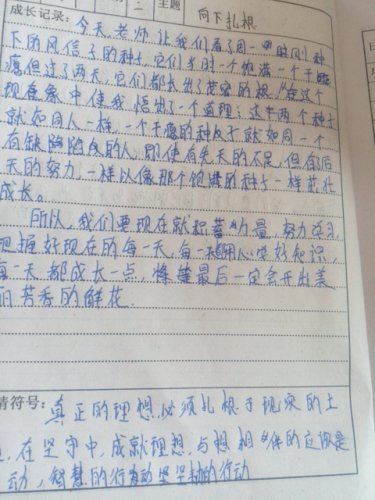 二 主题 向下扎根
成长记录：今天，老师让我们看了同一时间种
下的风信子的种子，它们当时一个饱满一个干瘪
但过了两天，它们都长出了茂密的根。在这个
现象中使我悟出了一个道理：这两个种子
就如同人一样，一个干瘪的种子就如同一个
有缺陷的人，即使有先天的不足，但后
天的努力，一样以像那个饱满的种子一样茁壮
成长。
所以，我们要现在就积蓄力量，努力学习，
把握好现在的每一天，每一天用心学好知识，
每一天都成长一点，最后一定会开出美
丽芳香的鲜花。
情符号：真正的理想，必须扎根于现实的土
，在坚守中，成就理想，与想相伴的应该是
动，智慧的行动坚的行动